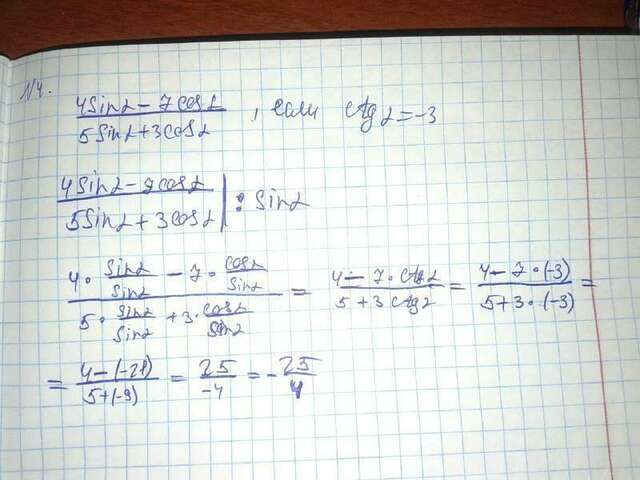 №4.
(4 sin α − 7 cos α) / (5 sin α + 3 cos α) , если ctg α = −3
(4 sin α − 7 cos α) / (5 sin α + 3 cos α) | : sin α
(4 · sin α / sin α − 7 · cos α / sin α) / (5 · sin α / sin α + 3 · cos α / sin α) = (4 − 7 · ctg α) / (5 + 3 ctg α) = (4 − 7 · (−3)) / (5 + 3 · (−3)) =
= (4 − (−21)) / (5 + (−9)) = 25 / −4 = − 25 / 4